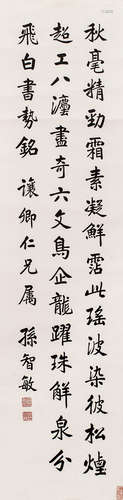 秋毫精勁霜素凝鮮霑此瑤波染彼松煙
超工八灋盡奇六文鳥企龍躍珠解泉分
飛白書勢銘 讓卿仁兄屬 孫智敏